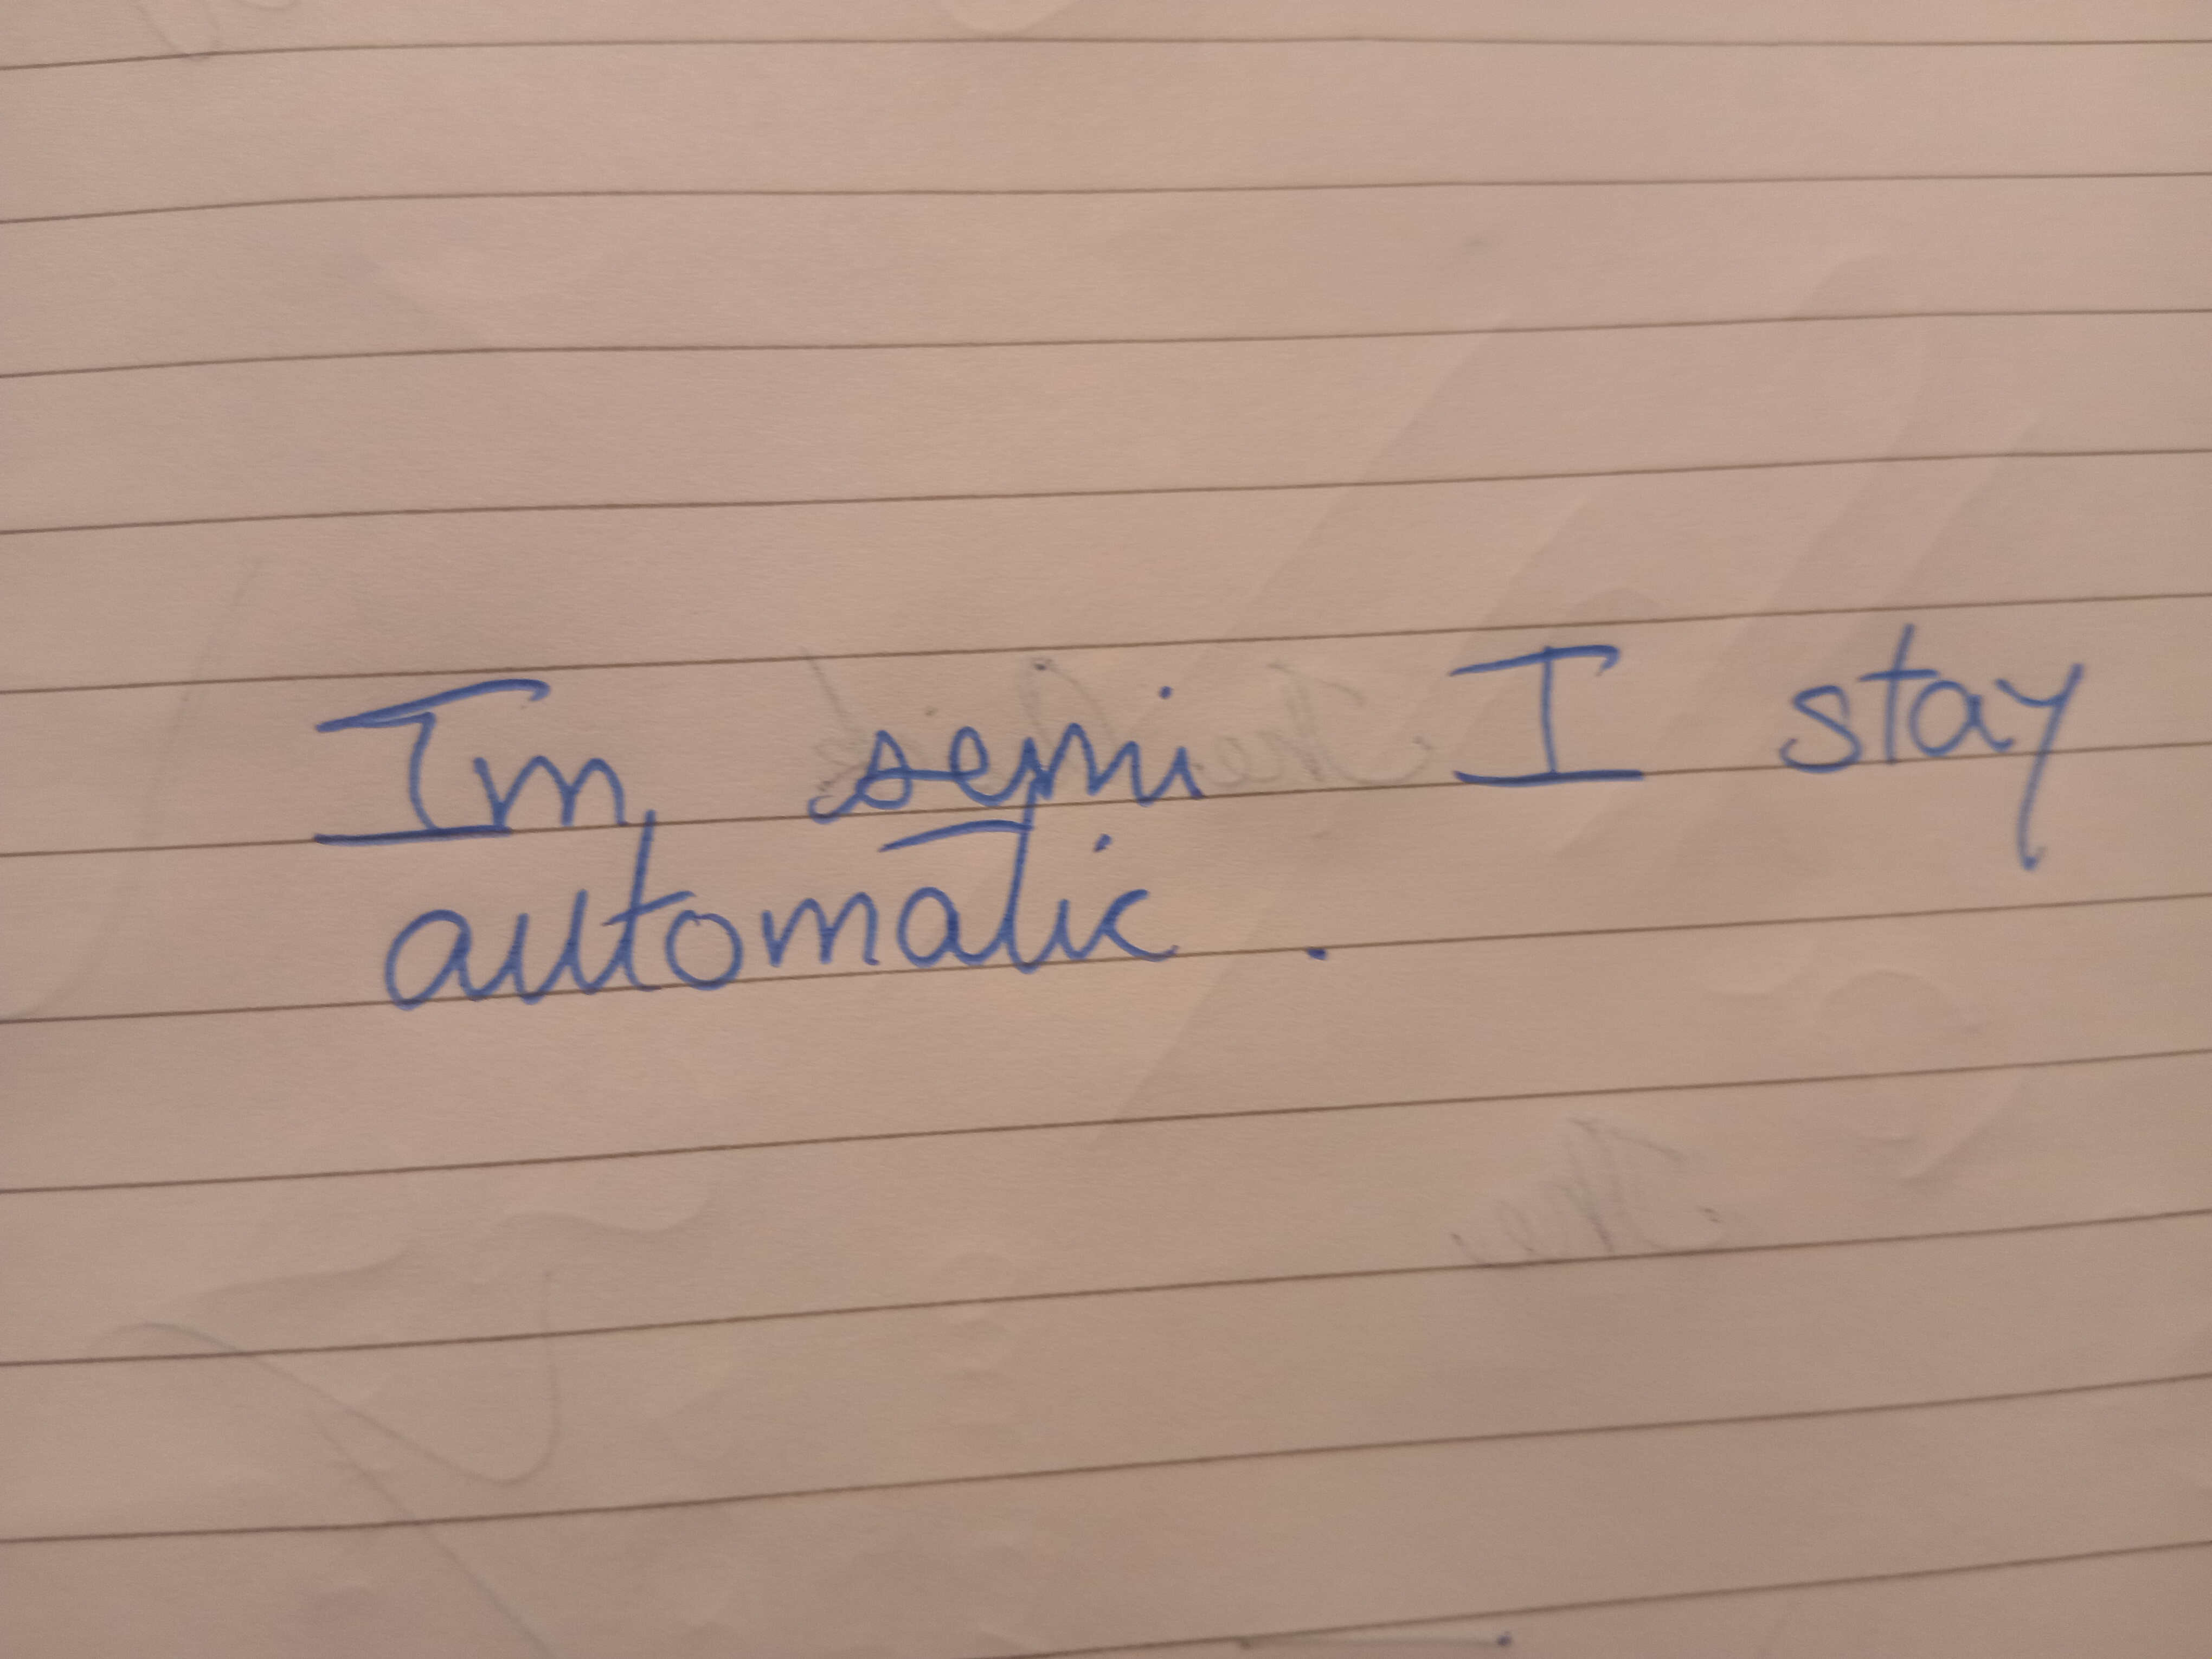 Im semi I stay
automatic .